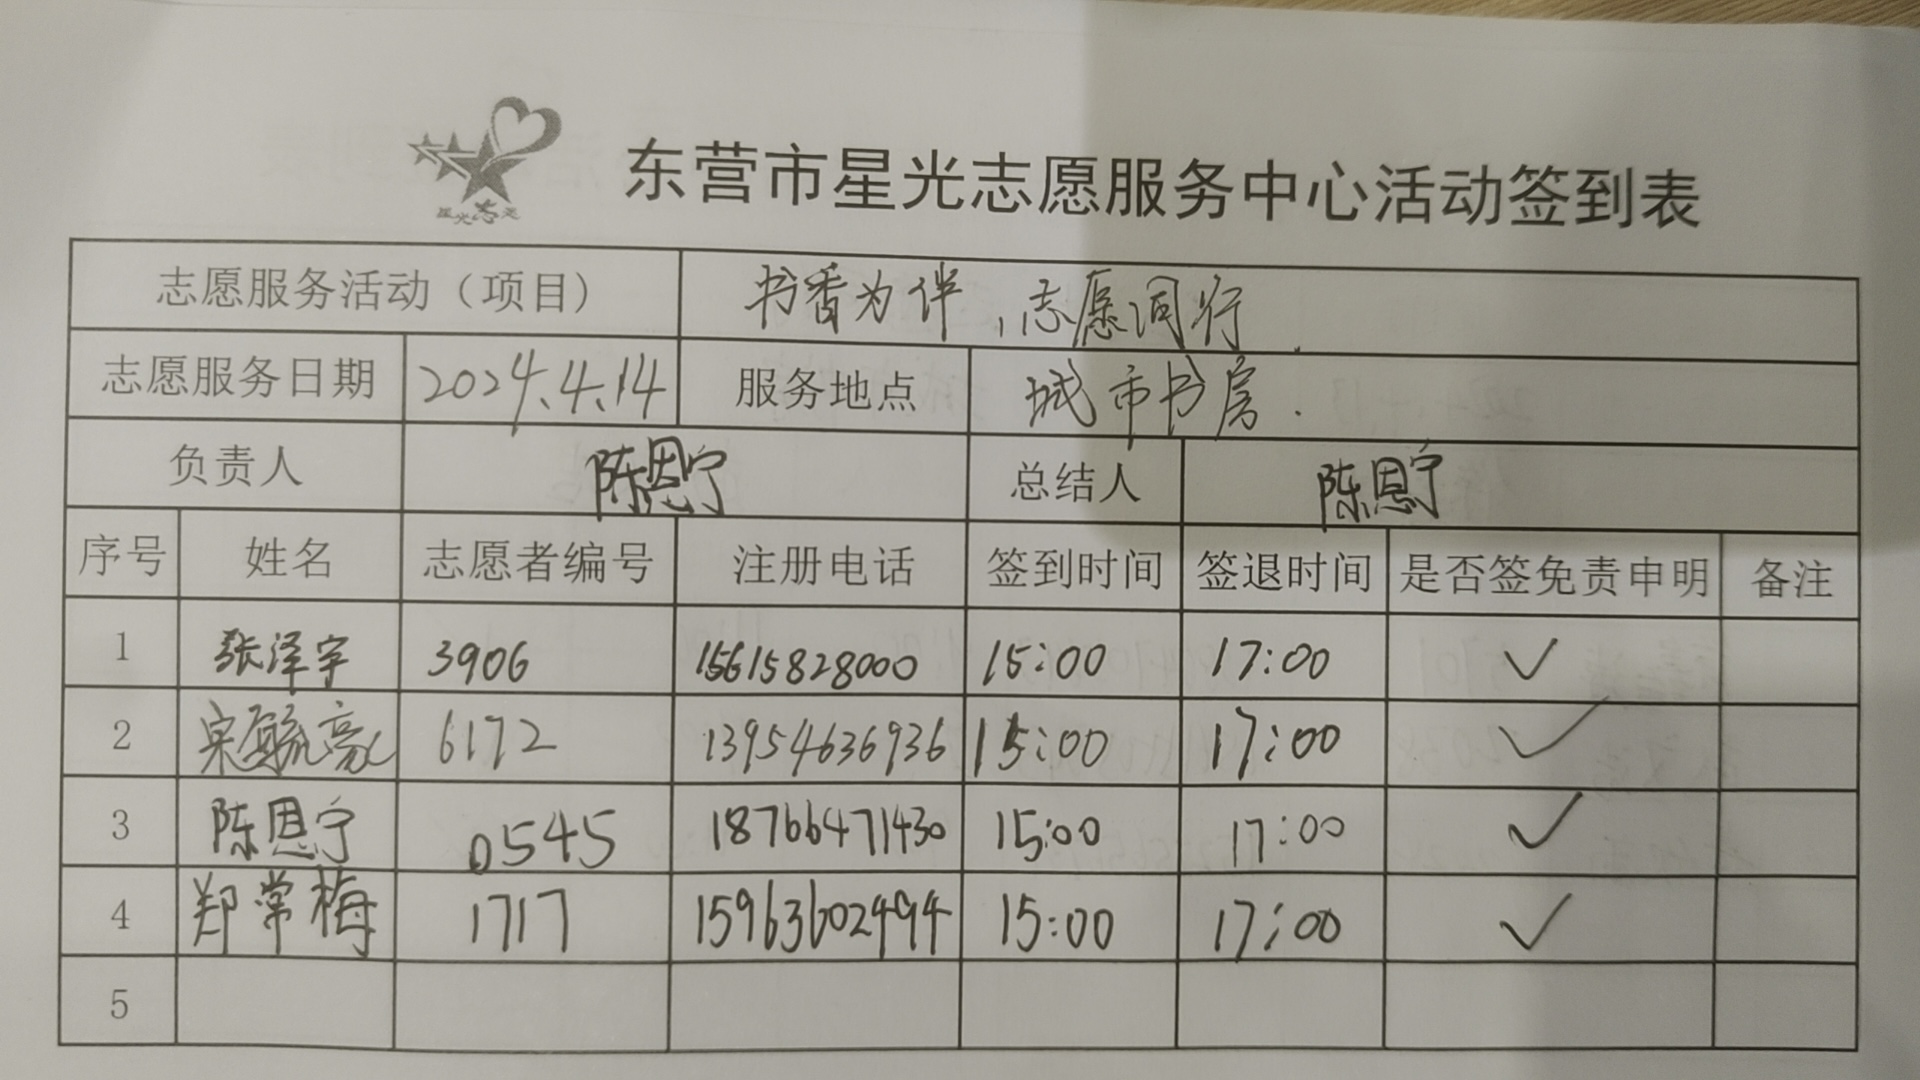 星光志愿
东营市星光志愿服务中心活动签到表
志愿服务活动（项目） 书香为伴，志愿同行.
志愿服务日期 2024.4.14 服务地点 城市书房.
负责人 陈恩宁 总结人 陈恩宁
序号 姓名 志愿者编号 注册电话 签到时间 签退时间 是否签免责申明 备注
1 张泽宇 3906 15615828000 15:00 17:00 ✓
2 宋毓豪 6172 13954636936 15:00 17:00 ✓
3 陈恩宁 0545 18766471430 15:00 17:00 ✓
4 郑常梅 1717 15963602494 15:00 17:00 ✓
5